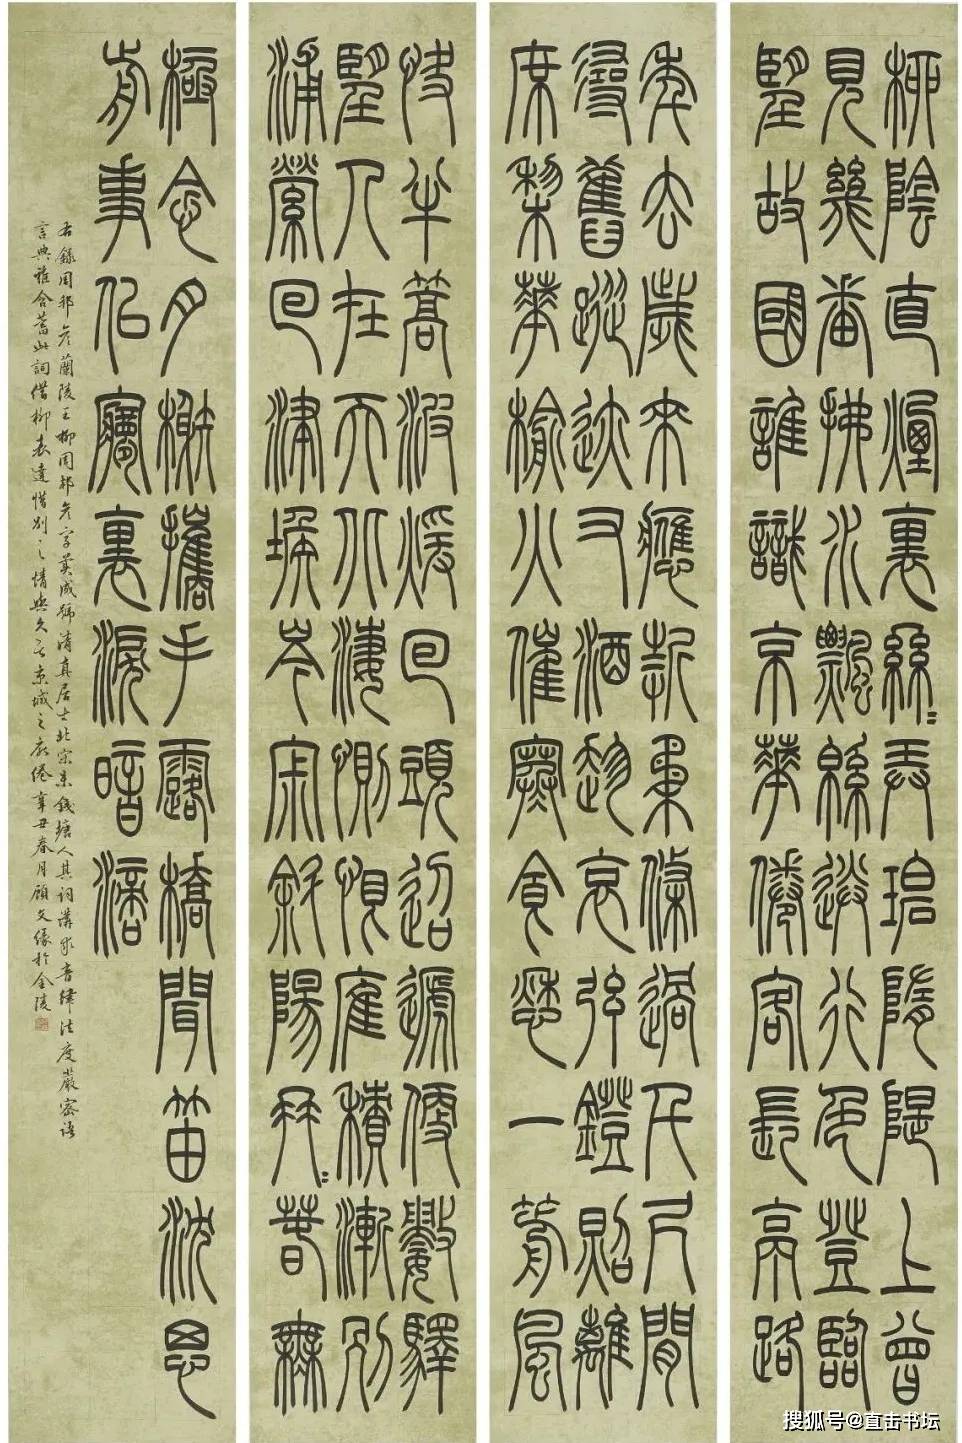 柳陰直煙裏絲〻弄碧隋隄上曾
見幾番拂水飄緜送行色登臨
望故國誰識京華倦客長亭路
年去歲來應折柔條過千尺閒
尋舊蹤迹又酒趁哀弦鐙照離
席梨華榆火催寒食愁一箭風
快半篙波煖回頭迢遞便數驛
望人在天北悽惻恨堆積漸別
浦縈回津堠岑寂斜陽冉〻春無
極念月榭攜手露橋聞笛沈思
前事似夢裏淚暗滴
右錄周邦彥蘭陵王柳周邦彥字美成號清真居士北宋末錢塘人其詞講求音律法度嚴密語
言典雅含蓄此詞借柳表達惜別之情與久客京城之厭倦辛丑春月顧文緣於金陵
搜狐号@直击书坛